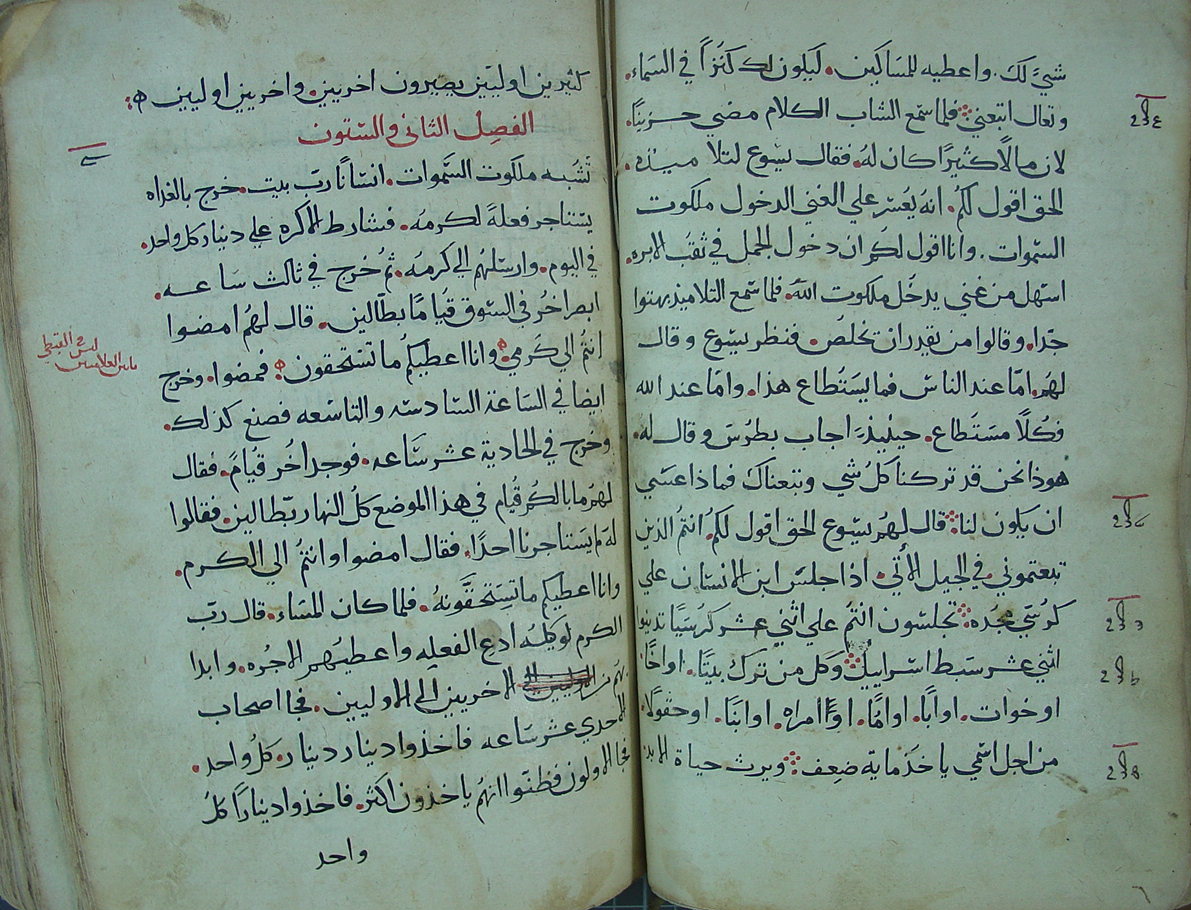 شيءً لك. واعطيه للمساكين. ليكون لك كنزاً في السماء.
وتعال اتبعني فلما سمع الشاب الكلام مضى حزيناً.
لان مالاً كثيرًا كان لهُ. فقال يسوع لتلاميذه.
الحق اقول لكمُ. انهُ يَعْسر علي الغني الدخول ملكوت
السموات. وانا اقول لكُم ان دخول الجمل في ثقب الابره.
اسهل من غني يدخُل ملكوت اللّه. فلما سمع التلاميذ بهتوا
جدًا. وقالوا من يقدر ان يخلُص. فنظر يسوع وقال
لهم. امّا عند الناس فما يسَتُطاع هذا. وامّا عند الله
فكُلاً مسَتَطاع. حينيذٍ اجاب بطرُس وقال له.
هوذا نحن قد تركنا كل شي وتبعناك فماذا عسَي
ان يكون لنا قال لهم يسوع الحق اقول لكمُ. انتمُ الذين
تبعتموني. في الجيل الاُتي. اذا جلس ابن الانسان علي
كرسَي مجده تجلسون انتمُ علي اثني عشر كرسيًا تدينوا
اثني عشر سبط اسراييل وكل من ترك بيتًا. او اخًا.
او خوات. او ابًا. او امًا. او امراه. او ابنًا. او حقولاً.
من اجل اسمي ياخذ ماية ضعِف. ويرث حياة الابد
كثيرين اوليَين يصيرون اخريين. واخريين اوليين
الفصل الثانى والستون
تَشبُه ملكوت السَّموات. انسانًا ربّ بيت. خرج بالغداه
يسَتاجر فعلةً لكرمهُ. فشارط الاكره علي دينار كل واحد.
في اليوم. وارسلهُم الي كرمهُ. ثمُ خرج في ثالث ساعه.
ابصر اخرُ في السَوق قُيامًا بطّالين. قال لهمُ امضوا
انتمُ الي كَرمي وانا اعطيكمُ ما تستحقون فمضوا. وخرج
ايضا في السَاعة السَادسه والتاسَعه فصنع كذلك.
وخرج في الحادية عشر سَاعه. فوجد اخُر قيُامً. فقال
لهمُ ما بالكمُ قيُام في هذا الموضع كلُ النهار بطّالين. فقالوا
له لم يسَتاجرنا احدًا. فقال امضوا وانتمُ الي الكرم.
وانا اعطيكم ما تسِتحقَّونهُ. فلما كان المسَاء. قال ربّ
الكرم لوكيلُه ادع الفعله واعطيهُم الاجُره. وابدا
بهم من الاخريين الي الاوليين. فجا اصحاب
الاحدي عشر سَاعه فاخذوا دينار دينار. كلُ واحد.
فجا الاولون فظنّوا انهمُ ياخذون اكثر. فاخذوا دينارًا كلُ
واحد